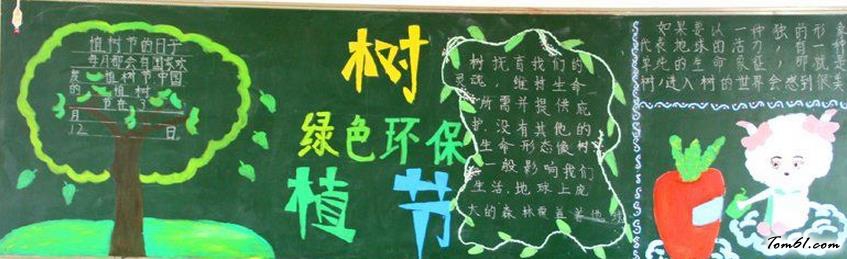 植树节的日子
每月都会有国家欢
度 植树节中国
的 植树
节在3
月
12 日
树
绿色环保
植 节
树抚育我们的
灵魂，维持生命
所需并提供庇
护，没有其他的
生命形态像树
一般影响我们
生活，地球上庞
大的森林覆盖着地球
如果要以一种独的形象
代表地球的活力，有一种
单纯的生命象征，那就是
树，进入树的世界会感到很美
Tom61.com